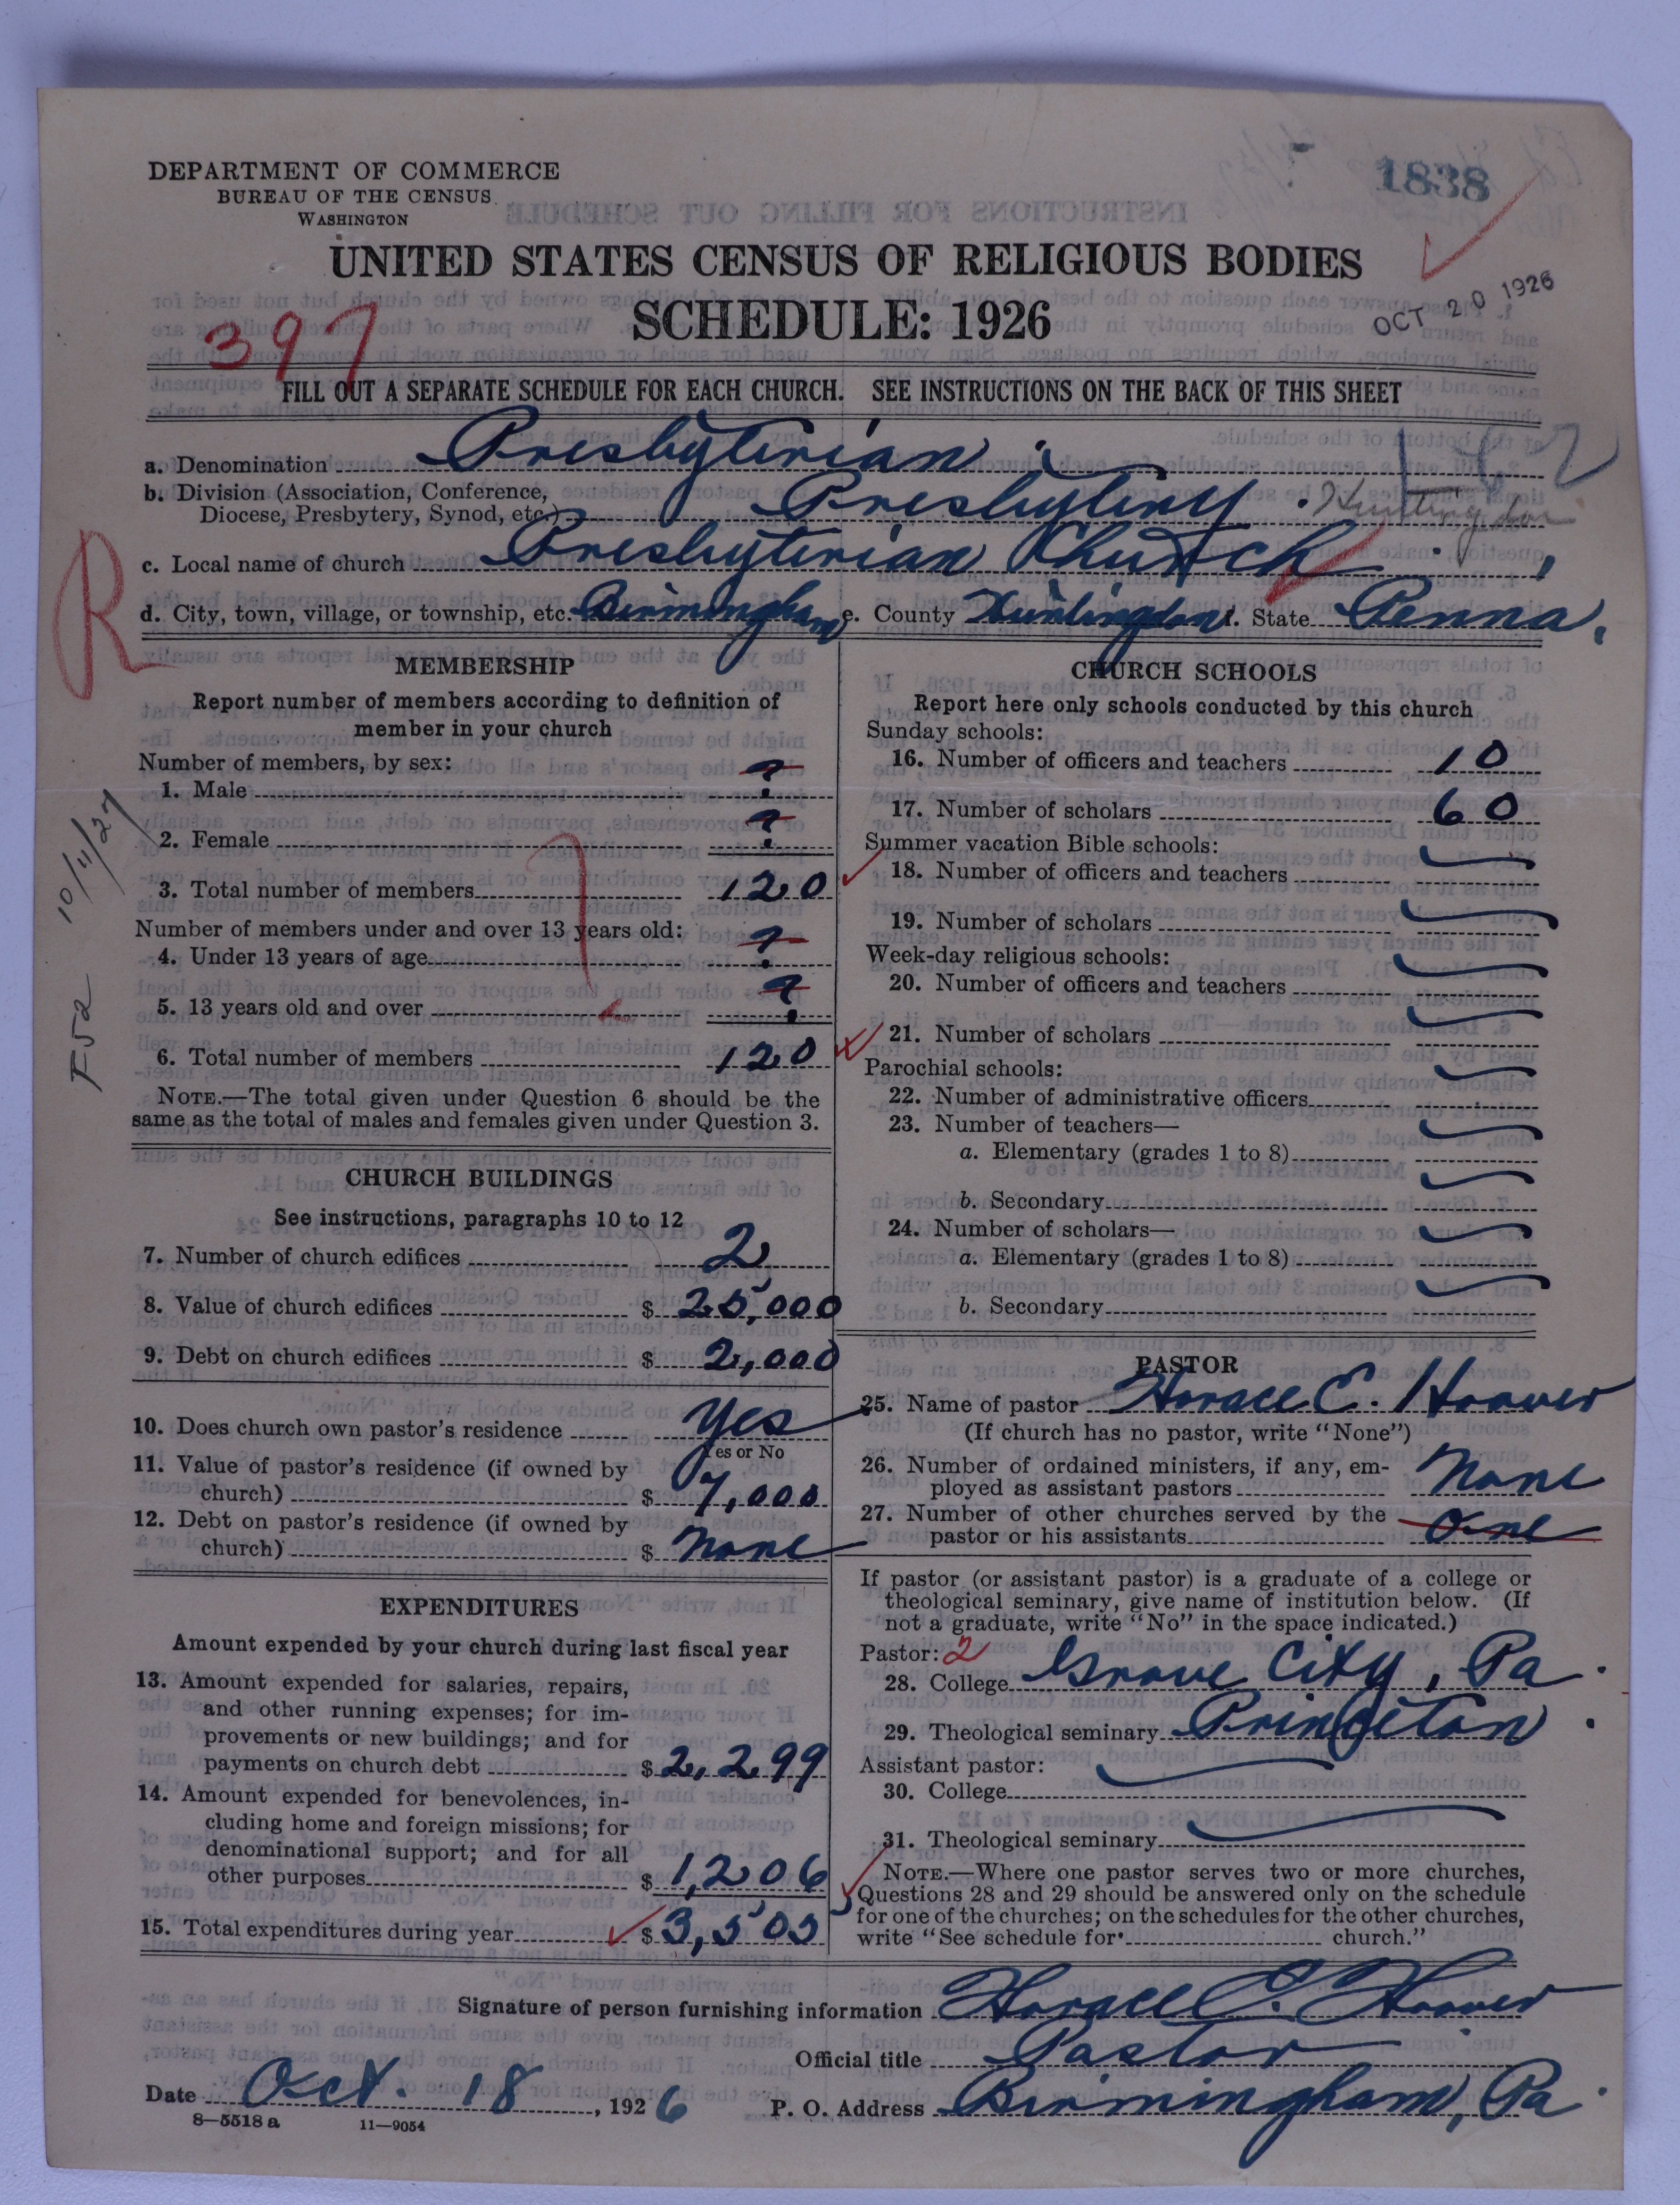 DEPARTMENT OF COMMERCE
BUREAU OF THE CENSUS
WASHINGTON
1838
UNITED STATES CENSUS OF RELIGIOUS BODIES
SCHEDULE: 1926
OCT 20 1926
397
FILL OUT A SEPARATE SCHEDULE FOR EACH CHURCH. SEE INSTRUCTIONS ON THE BACK OF THIS SHEET
a. Denomination Presbyterian.
b. Division (Association, Conference, Diocese, Presbytery, Synod, etc.) Presbytery. Huntingdon
c. Local name of church Presbyterian Church
R
d. City, town, village, or township, etc. Birmingham e. County Huntingdon f. State Penna.
MEMBERSHIP
Report number of members according to definition of
member in your church
Number of members, by sex:
1. Male ?
2. Female ?
3. Total number of members 120
Number of members under and over 13 years old:
4. Under 13 years of age ?
5. 13 years old and over ?
6. Total number of members 120
NOTE.—The total given under Question 6 should be the
same as the total of males and females given under Question 3.
F52 10/11/27
CHURCH BUILDINGS
See instructions, paragraphs 10 to 12
7. Number of church edifices 2
8. Value of church edifices $ 25,000
9. Debt on church edifices $ 2,000
10. Does church own pastor's residence Yes
Yes or No
11. Value of pastor's residence (if owned by
church) $ 7,000
12. Debt on pastor's residence (if owned by
church) $ None
EXPENDITURES
Amount expended by your church during last fiscal year
13. Amount expended for salaries, repairs,
and other running expenses; for im-
provements or new buildings; and for
payments on church debt $ 2,299
14. Amount expended for benevolences, in-
cluding home and foreign missions; for
denominational support; and for all
other purposes $ 1,206
15. Total expenditures during year $ 3,505
CHURCH SCHOOLS
Report here only schools conducted by this church
Sunday schools:
16. Number of officers and teachers 10
17. Number of scholars 60
Summer vacation Bible schools:
18. Number of officers and teachers
19. Number of scholars
Week-day religious schools:
20. Number of officers and teachers
21. Number of scholars
Parochial schools:
22. Number of administrative officers
23. Number of teachers—
a. Elementary (grades 1 to 8)
b. Secondary
24. Number of scholars—
a. Elementary (grades 1 to 8)
b. Secondary
PASTOR
25. Name of pastor Horace C. Hoover
(If church has no pastor, write "None")
26. Number of ordained ministers, if any, em-
ployed as assistant pastors None
27. Number of other churches served by the
pastor or his assistants One
If pastor (or assistant pastor) is a graduate of a college or
theological seminary, give name of institution below. (If
not a graduate, write "No" in the space indicated.)
Pastor: 2
28. College Grove City, Pa.
29. Theological seminary Princeton.
Assistant pastor:
30. College
31. Theological seminary
NOTE.—Where one pastor serves two or more churches,
Questions 28 and 29 should be answered only on the schedule
for one of the churches; on the schedules for the other churches,
write "See schedule for church."
Signature of person furnishing information Horace C. Hoover
Official title Pastor
Date Oct. 18, 1926 P. O. Address Birmingham, Pa.
8—5518a 11—9054